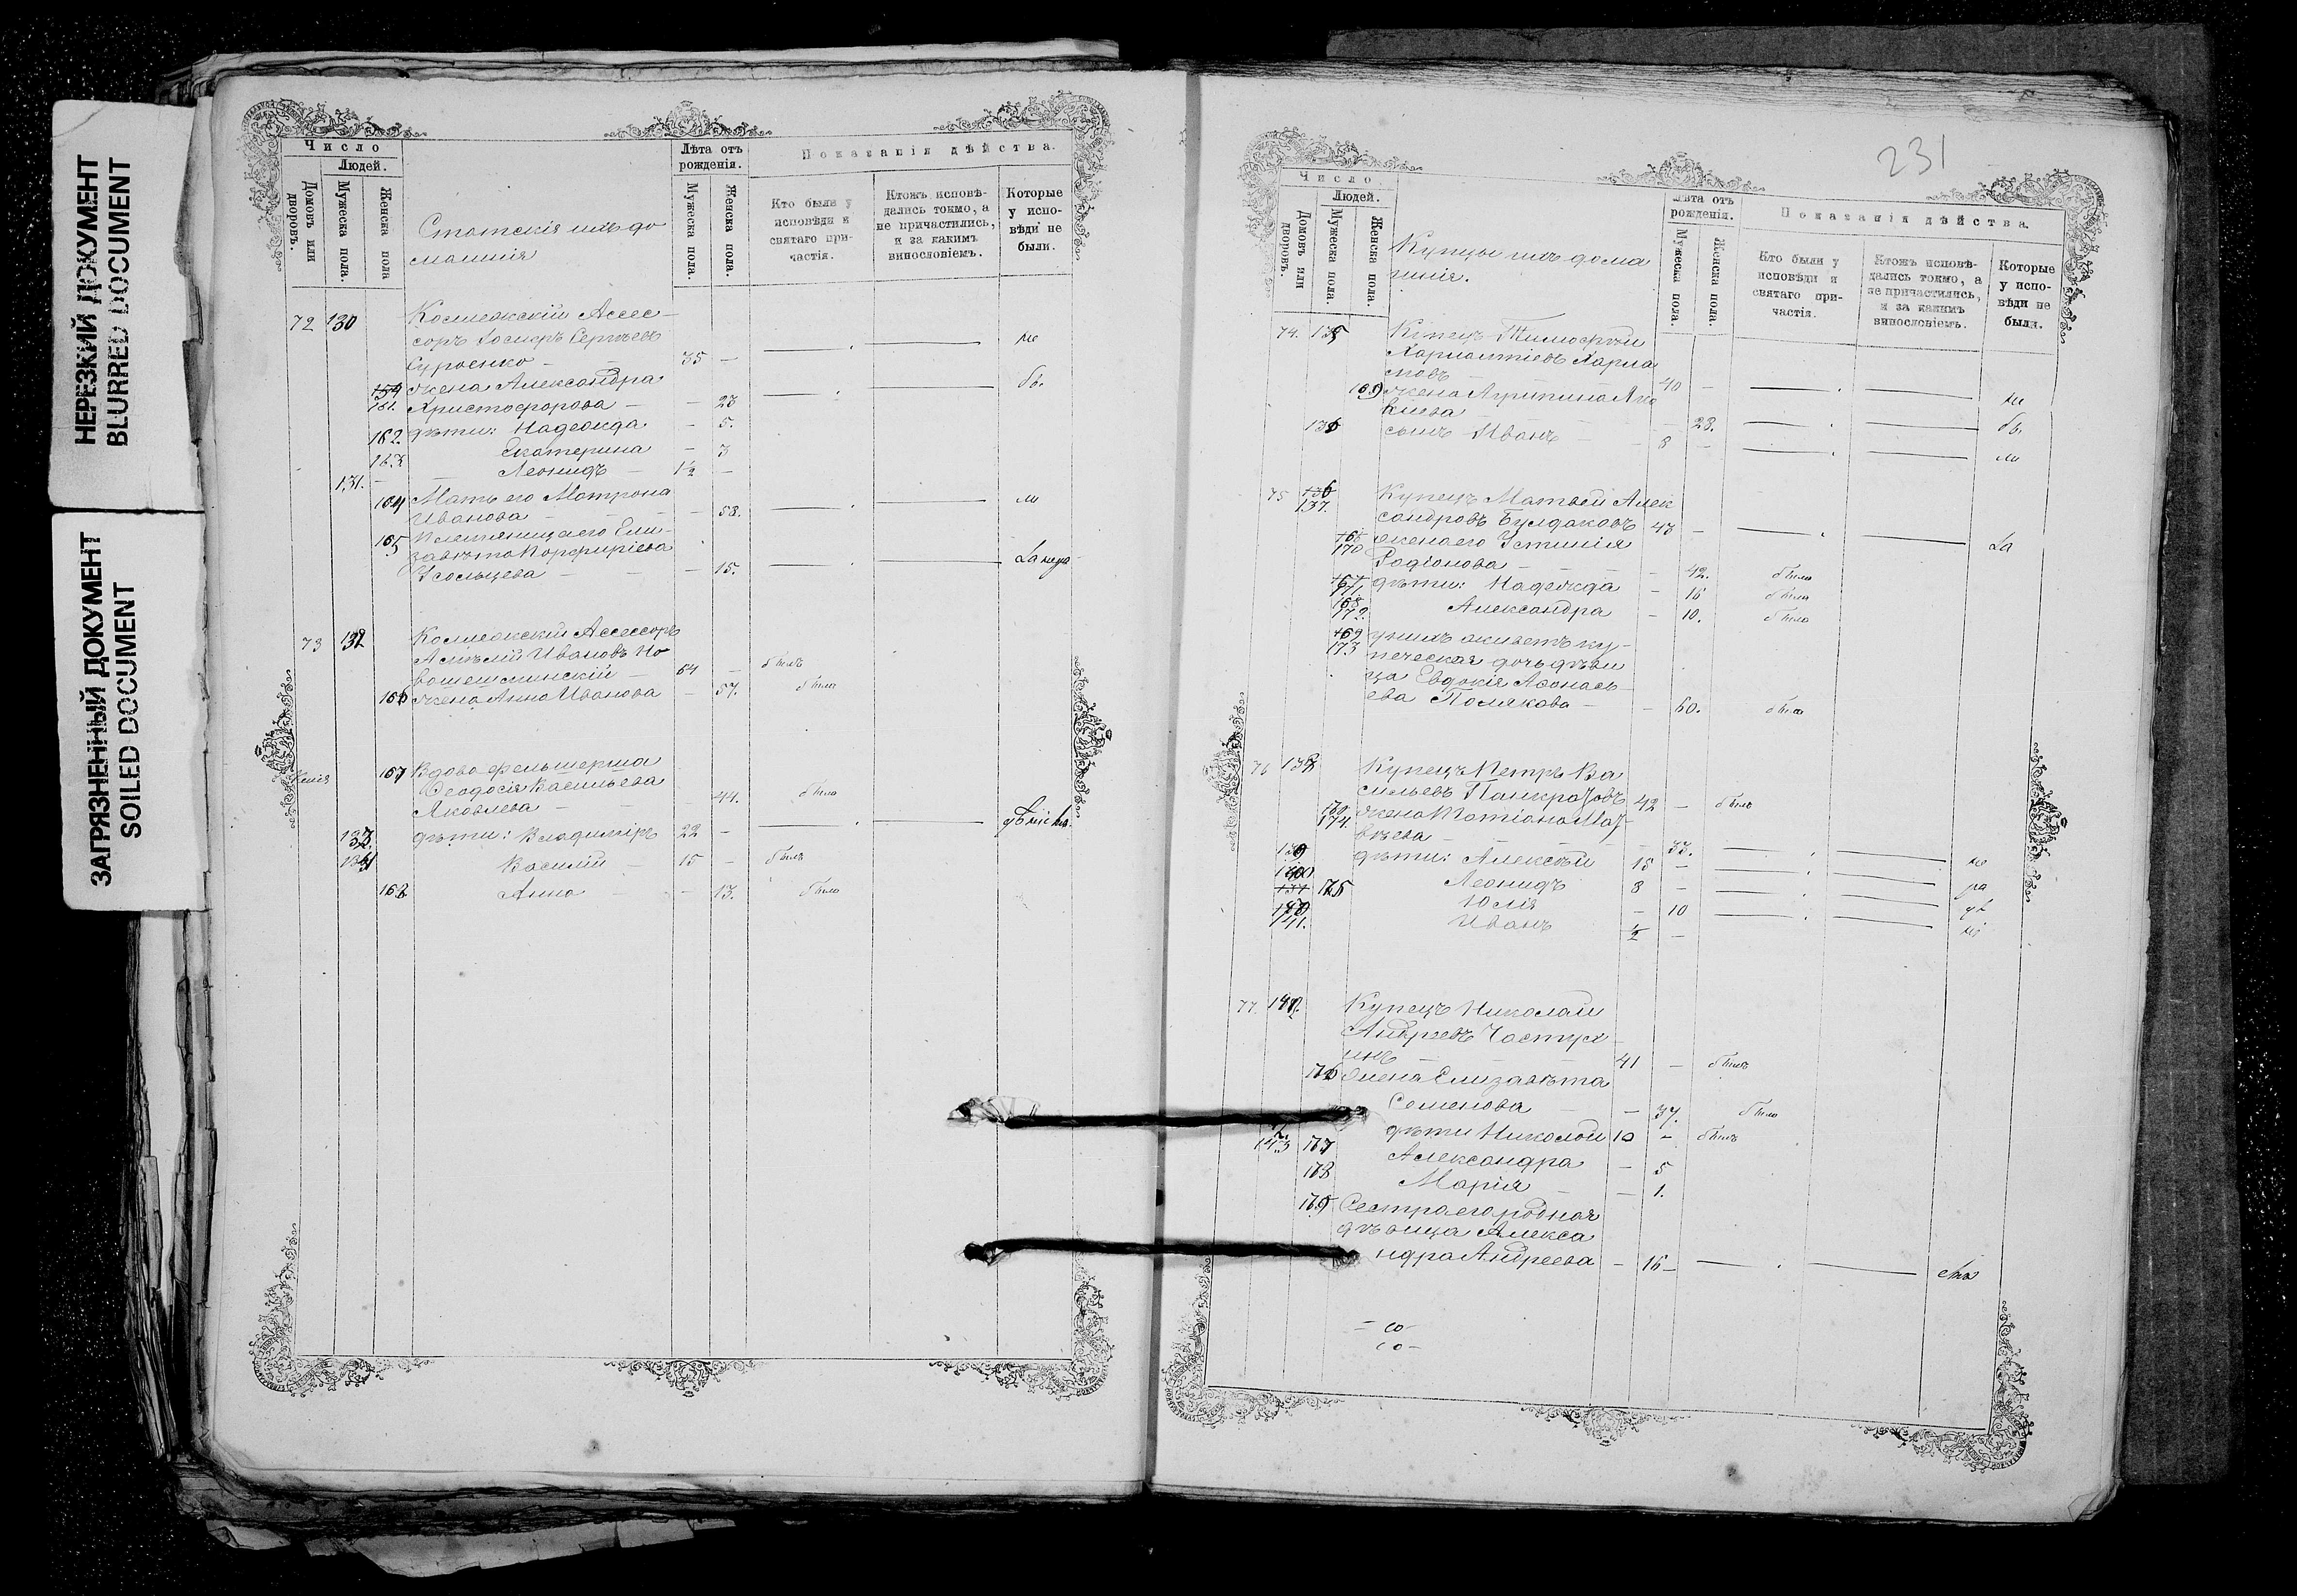 НЕРЕЗКИЙ ДОКУМЕНТ
BLURRED DOCUMENT
ЗАГРЯЗНЕННЫЙ ДОКУМЕНТ
SOILED DOCUMENT
Число
Людей.
Домовъ или дворовъ.
Мужеска пола.
Женска пола
Статскія ихъ до
машнія
Лѣта отъ рожденія.
Мужеска пола.
Женска пола.
Показанія дѣйства.
Кто были у исповѣди и святаго причастія.
Ктожъ исповѣдались токмо, а не причастились, и за какимъ винословіемъ.
Которые у исповѣди не были.
72 130 Коллежскій Ассес
соръ Сергѣевъ
35 — не
154 жена Александра бы
161. Христофорова — — 23
162. дѣти: Надежда — 5.
163 Екатерина — 3
131. Леонидъ — 1½ —
164 Мать его Матрона
Иванова — — 58.
165 Племянница его Ели-
завѣта Порфиріева
Усольцева — — 15.
73 132 Коллежскій Ассессоръ
Ивановъ Но
вошешминскій — 64 — былъ
166 жена Анна Иванова — 57. была
167 Вдова фельшерша
Ѳеодосія Васильева
Яковлева — 44. была
133. дѣти: Владиміръ 22 —
Василій — 15 — былъ
168 Анна — 13. была
231
Число
Людей.
Домовъ или дворовъ.
Мужеска пола.
Женска пола.
Купцы ихъ дома
шнія.
Лѣта отъ рожденія.
Мужеска пола.
Женска пола.
Показанія дѣйства.
Кто были у исповѣди и святаго причастія.
Ктожъ исповѣдались токмо, а не причастились, и за какимъ винословіемъ.
Которые у исповѣди не были.
74. 135 Купецъ Тимофѣй
40 —
169 жена Агрипина
28. бы
136 сынъ Иванъ — 8 —
75 136
137. Купецъ Матвѣй Алек
сандровъ Булдаковъ 43 —
170 жена его Устинія
Родіонова — 42. была
171. дѣти: Надежда — 16 была
168
172. Александра — 10. была
169
173 у нихъ живетъ ку-
печеская дочь дѣви
ца Евдокія Аѳонась-
ева Полякова — — 60. была
76 138 Купецъ Петръ Ва
сильевъ Панкратовъ 42 — былъ
174. жена Татіана Мат
вѣева — 33.
139 дѣти: Алексѣй 15 — не
140 175 Леонидъ 8 — ра
Юлія — 10
141. Иванъ ½ —
77. 142. Купецъ Николай
Андреевъ Частух
инъ 41 — былъ
176 жена Елизавѣта
Семенова — 37. была
143 177 дѣти Николай 10 — былъ
Александра — 5
178 Марія — 1.
179 Сестра его родная
дѣвица Алекса
ндра Андреева — 16 —